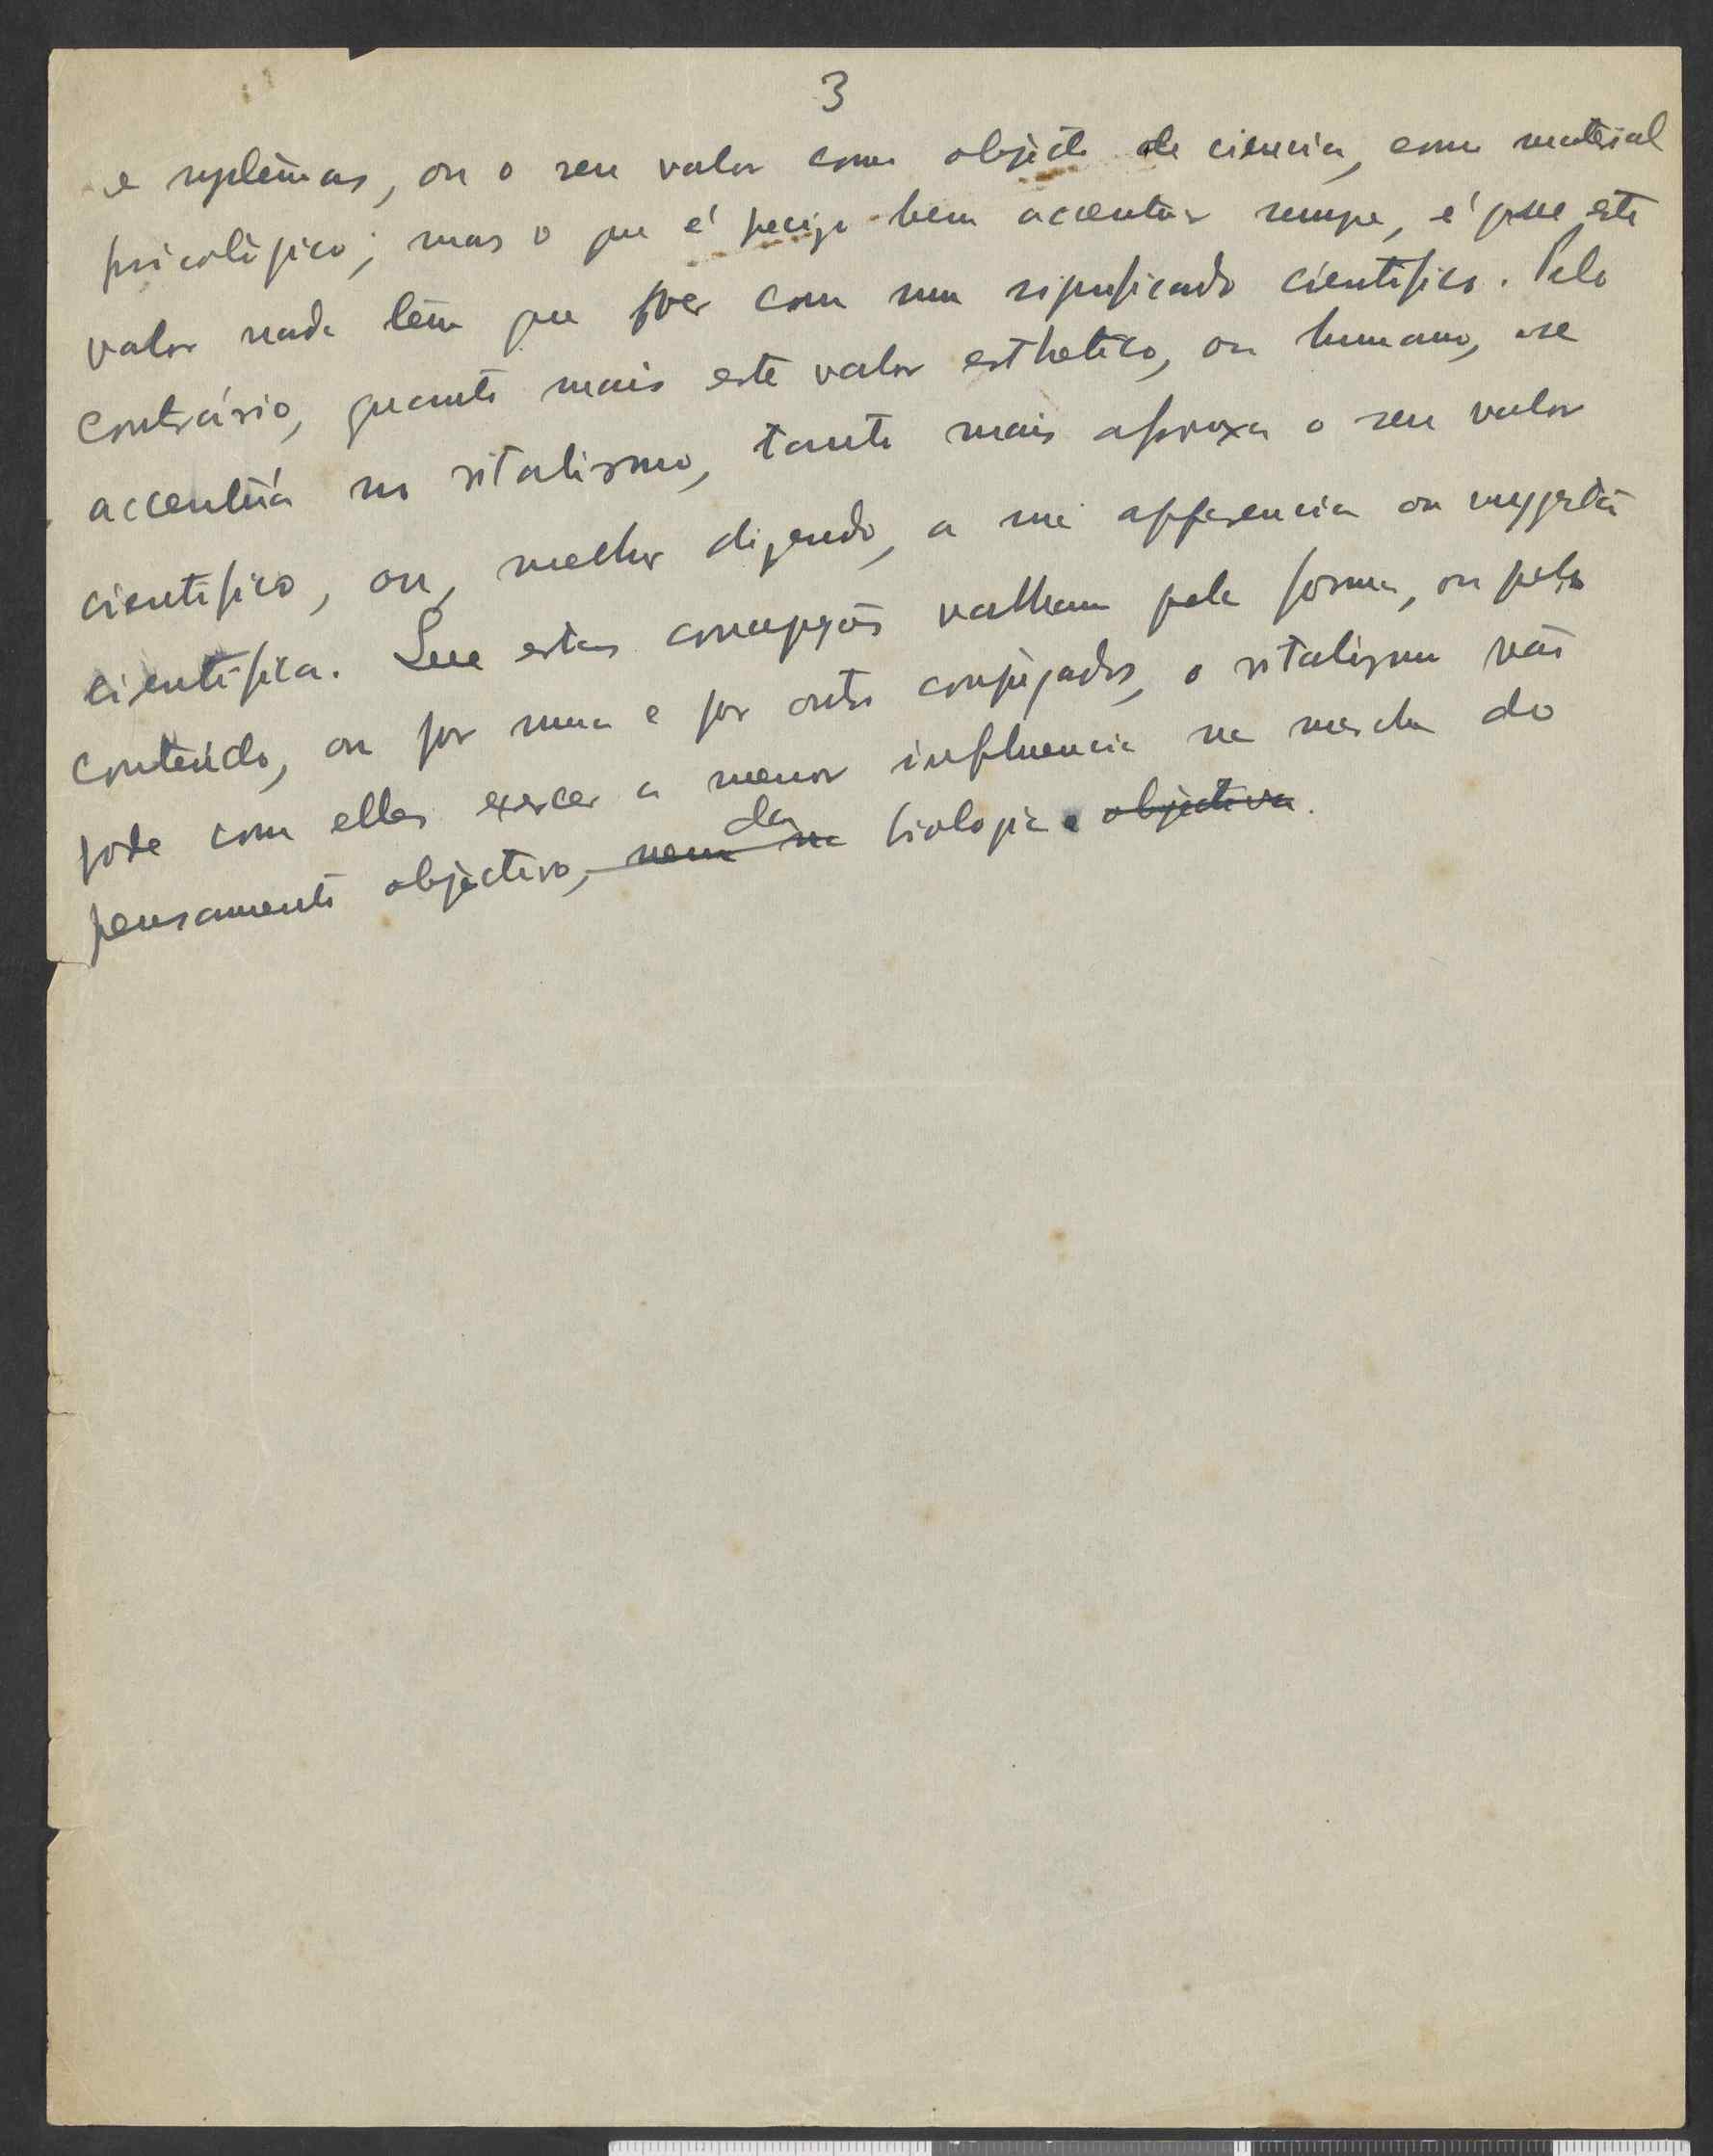 3
e systemas, ou o seu valor como objécto de ciencia, como material
psicológico; mas o que é preciso bem accentuar sempre, é que este
valor nada têm que ver com um significado cientifico. Pelo
contrário, quanto mais este valor esthetico, ou humano, se
accentúa no vitalismo, tanto mais afrouxa o seu valor
cientifico, ou, melhor dizendo, a sua apparencia ou suggestão
cientifica. Que estas concepções valham pela forma, ou pelo
conteúdo, ou por uma e por outro conjugados, o vitalismo não
pode com ellas exercer a menor influencia na marcha do
pensamento objectivo, nem na da biologia objectiva.